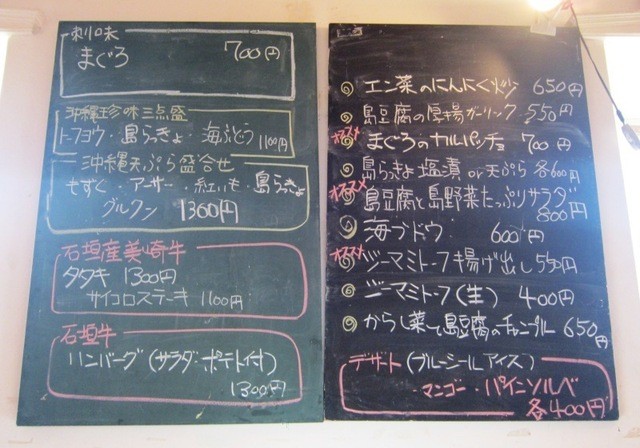 刺身
まぐろ 700円
沖縄珍味三点盛
トーフヨウ・島らっきょ 海ぶどう 1100円
沖縄天ぷら盛合せ
もずく・アーサー・紅いも・島らっきょ
グルクン 1300円
石垣産美崎牛
タタキ 1300円
サイコロステーキ 1100円
石垣牛
ハンバーグ(サラダ・ポテト付)
1300円
エン菜のにんにく炒 650円
島豆腐の厚揚ガーリック 550円
オススメ まぐろのカルパッチョ 700円
島らっきょ 塩漬 or 天ぷら 各600円
オススメ 島豆腐と島野菜たっぷりサラダ
800円
海ブドウ 600円
オススメ ジーマミトーフ揚げ出し 550円
ジーマミトーフ(生) 400円
からし菜と島豆腐のチャンプルー 650円
デザート(ブルーシールアイス)
マンゴー・パインソルベ
各400円